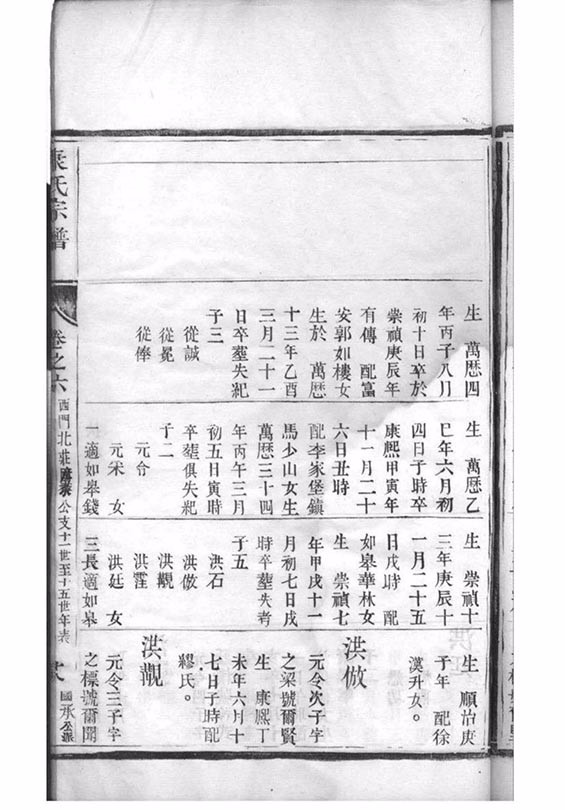 生 萬曆四
年丙子八月
初十日卒於
崇禎庚辰年
有傳 配富
安郭如樓女
生於 萬曆
十三年乙酉
三月二十一
日卒塟失紀
子三
從誠
從冕
從俸
生 萬曆乙
巳年六月初
四日子時卒
康熙甲寅年
十一月二十
六日丑時
配李家堡鎮
馬少山女生
萬曆三十四
年丙午三月
初五日寅時
卒塟俱失紀
子二
元令
元采 女
一適如皋錢
生 崇禎十
三年庚辰十
一月二十五
日戌時 配
如皋華林女
生 崇禎七
年甲戌十一
月初七日戌
時卒塟失考
子五
洪石
洪倣
洪觀
洪廷 女
三長適如皋
生 順治庚
子年 配徐
漢升女。
洪倣
元令次子字
之梁號爾賢
生 康熙丁
未年六月十
七日子時配
繆氏。
洪觀
元令三子字
之標號爾聞
氏宗譜
卷之六
西門北莊 公支十一世至十五世年表
國承公派